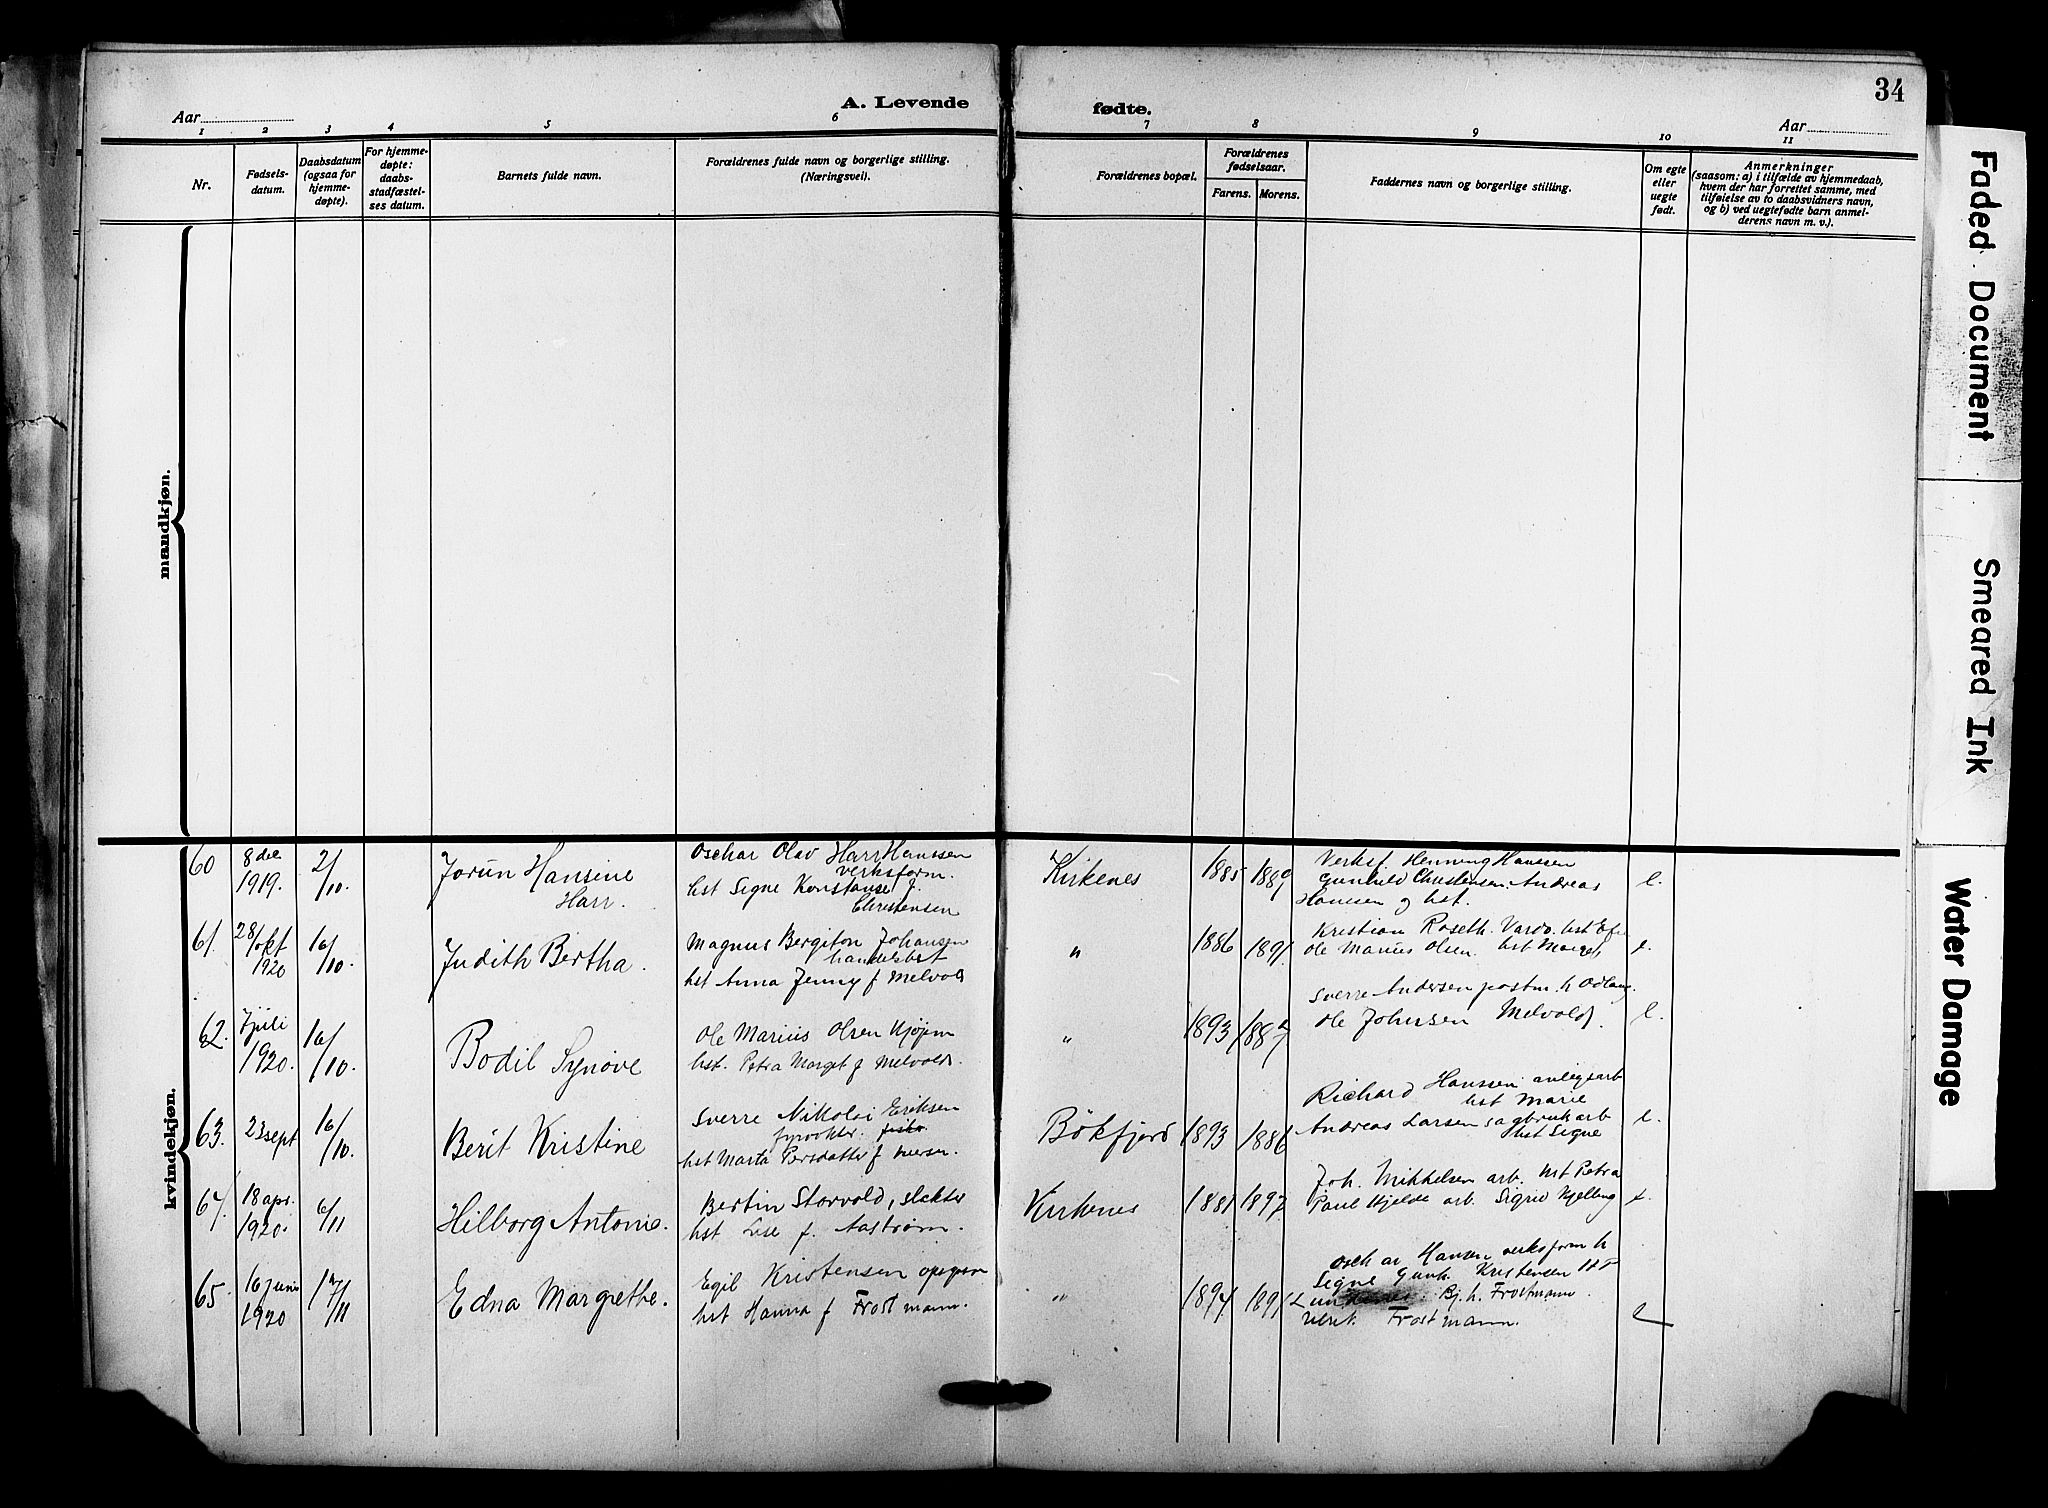 34
A. Levende fødte.
Aar
Aar
1 2 3 4 5 6 7 8 9 10 11
Nr.
Fødsels-
datum.
Daabsdatum
(ogsaa for
hjemme-
døpte).
For hjemme-
døpte:
daabs-
stadfæstel-
ses datum.
Barnets fulde navn.
Forældrenes fulde navn og borgerlige stilling.
(Næringsvei).
Forældrenes bopæl.
Forældrenes
fødselsaar.
Farens. Morens.
Faddernes navn og borgerlige stilling.
Om egte
eller
uegte
født.
Anmerkninger
(saasom: a) i tilfælde av hjemmedaab,
hvem der har forrettet samme, med
tilføielse av to daabsvidners navn,
og b) ved uegtefødte barn anmel-
derens navn m. v.).
mandkjøn.
kvindekjøn.
60
8 dec
1919.
2/10.
Jorun Hansine
Harr.
Oschar Olav Harr Hanssen
verksform.
hst Signe Konstanse f.
Christensen
Kirkenes
1885
1889
Verksf. Henning Hanssen
Gunhild Christensen. Andreas
Hanssen og hst.
e.
61.
28/okt
1920
16/10.
Judith Bertha.
Magnus Bergiton Johansen
handelsbest
hst Anna Jenny f Melvold
"
1886
1891.
Kristian Roseth. Vardø. hst
Ole Marius Olsen. hst Marget
Sverre Andersen postm. h Odlaug.
e.
62.
7 juli
1920.
16/10.
Bodil Synøve
Ole Marius Olsen
hst. Petra Marget f Melvold.
"
1893
1887
Ole Johnsen Melvold.
e.
63.
23 sept
16/10.
Berit Kristine
Sverre Nikolai Eriksen
fyrvokter.
hst Marta Persdatter f
Bökfjord
1893
1886
Richard Hanssen anlegsarb
hst Marie
Andreas Larsen sagbrukarb
hst Signe
e.
64.
18 apr.
1920.
6/11
Hilborg Antonie.
Bertin Storvold, slakter
hst Lise f. Aastrøm.
Kirkenes
1881
1897
Joh. Mikkelsen arb. hst Petra
Paul Hjelde arb. Sigrid Kjelling
e.
65.
16 juni
1920
17/11
Edna Margrethe.
Egil Kristensen opsynsm
hst Hanna f Frostmann.
"
1894.
1891
Osch av Hansen verksform h
Signe Gunh. Kristensen
Bj. h. Frostmann.
Frostmann.
e
Faded Document
Smeared Ink
Water Damage